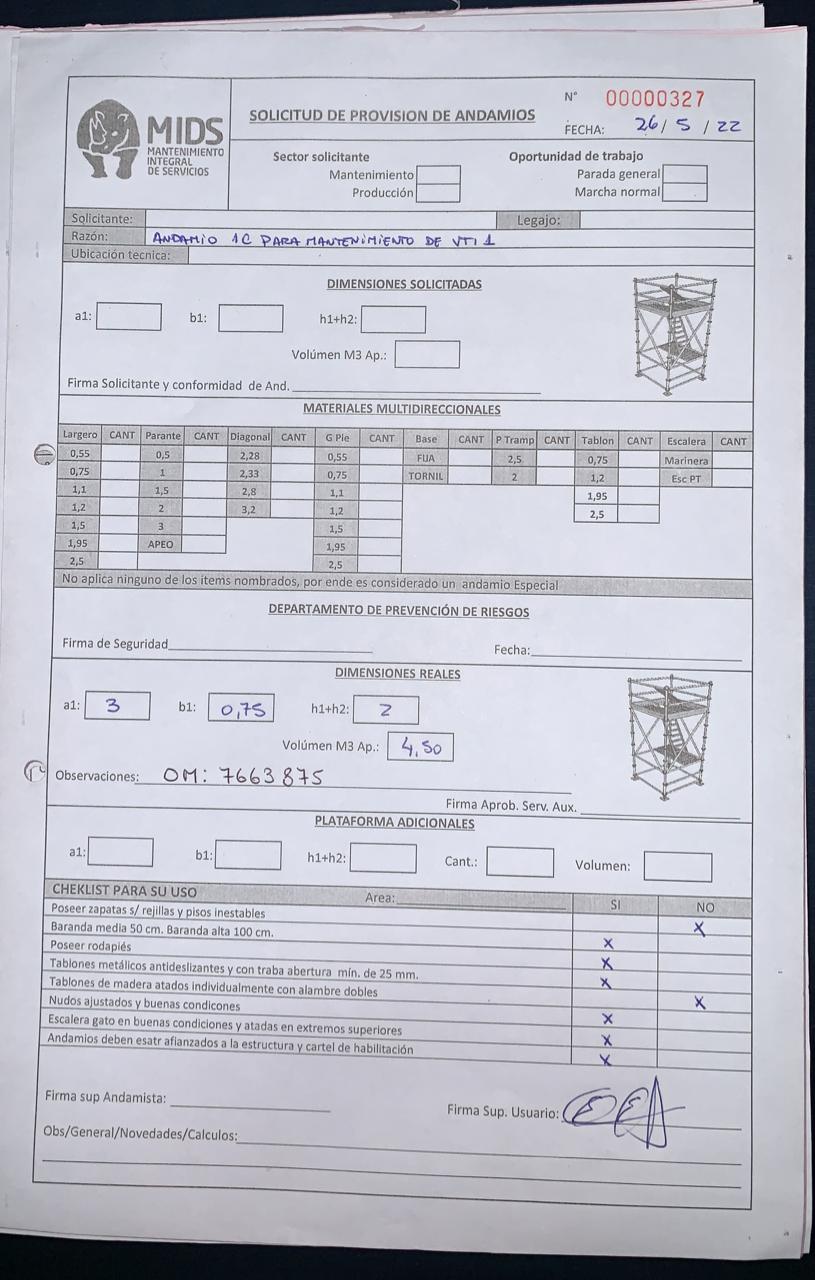 MIDS
MANTENIMIENTO
INTEGRAL
DE SERVICIOS
SOLICITUD DE PROVISION DE ANDAMIOS
N° 00000327
FECHA: 26/ 5 / 22
Sector solicitante
Mantenimiento
Producción
Oportunidad de trabajo
Parada general
Marcha normal
Solicitante: Legajo:
Razón: ANDAMIO 1C PARA MANTENIMIENTO DE VTI 1
Ubicación tecnica:
DIMENSIONES SOLICITADAS
a1: b1: h1+h2:
Volúmen M3 Ap.:
Firma Solicitante y conformidad de And.
MATERIALES MULTIDIRECCIONALES
Largero CANT Parante CANT Diagonal CANT G Pie CANT Base CANT P Tramp CANT Tablon CANT Escalera CANT
0,55 0,5 2,28 0,55 FIJA 2,5 0,75 Marinera
0,75 1 2,33 0,75 TORNIL 2 1,2 Esc PT
1,1 1,5 2,8 1,1 1,95
1,2 2 3,2 1,2 2,5
1,5 3 1,5
1,95 APEO 1,95
2,5 2,5
No aplica ninguno de los items nombrados, por ende es considerado un andamio Especial
DEPARTAMENTO DE PREVENCIÓN DE RIESGOS
Firma de Seguridad Fecha:
DIMENSIONES REALES
a1: 3 b1: 0,75 h1+h2: 2
Volúmen M3 Ap.: 4,50
Observaciones: OM: 7663875
Firma Aprob. Serv. Aux.
PLATAFORMA ADICIONALES
a1: b1: h1+h2: Cant.: Volumen:
CHEKLIST PARA SU USO Area: SI NO
Poseer zapatas s/ rejillas y pisos inestables X
Baranda media 50 cm. Baranda alta 100 cm. X
Poseer rodapiés X
Tablones metálicos antideslizantes y con traba abertura mín. de 25 mm. X
Tablones de madera atados individualmente con alambre dobles X
Nudos ajustados y buenas condicones X
Escalera gato en buenas condiciones y atadas en extremos superiores X
Andamios deben esatr afianzados a la estructura y cartel de habilitación X
Firma sup Andamista: Firma Sup. Usuario:
Obs/General/Novedades/Calculos: